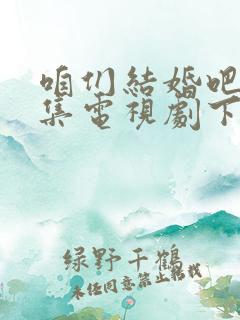 咱们結婚吧
集電視劇下
绿野千鶴
未经同意禁止转载